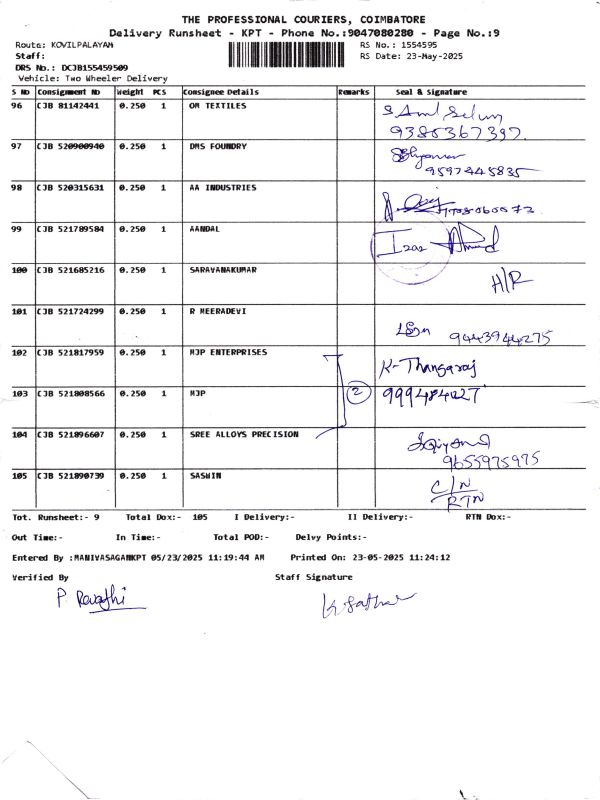 THE PROFESSIONAL COURIERS, COIMBATORE
Delivery Runsheet - KPT - Phone No.:9047080280 - Page No.:9
Route: KOVILPALAYAM
RS No.: 1554595
Staff:
RS Date: 23-May-2025
DRS No.: DCJB155459509
Vehicle: Two Wheeler Delivery
S No Consignment No Weight PCS Consignee Details Remarks Seal & Signature
96 CJB 81142441 0.250 1 OM TEXTILES
9385367397.
97 CJB 520900940 0.250 1 DMS FOUNDRY
9597445835
98 CJB 520315631 0.250 1 AA INDUSTRIES
99 CJB 521789584 0.250 1 AANDAL
100 CJB 521685216 0.250 1 SARAVANAKUMAR
H/R
101 CJB 521724299 0.250 1 R MEERADEVI
9443944275
102 CJB 521817959 0.250 1 MJP ENTERPRISES K-Thangaraj
103 CJB 521808566 0.250 1 MJP 2
104 CJB 521896607 0.250 1 SREE ALLOYS PRECISION
9655975975
105 CJB 521890739 0.250 1 SASWIN C/N
RTN
Tot. Runsheet:- 9 Total Dox:- 105 I Delivery:- II Delivery:- RTN Dox:-
Out Time:- In Time:- Total POD:- Delvy Points:-
Entered By :MANIVASAGANKPT 05/23/2025 11:19:44 AM Printed On: 23-05-2025 11:24:12
Verified By Staff Signature
P Revathi